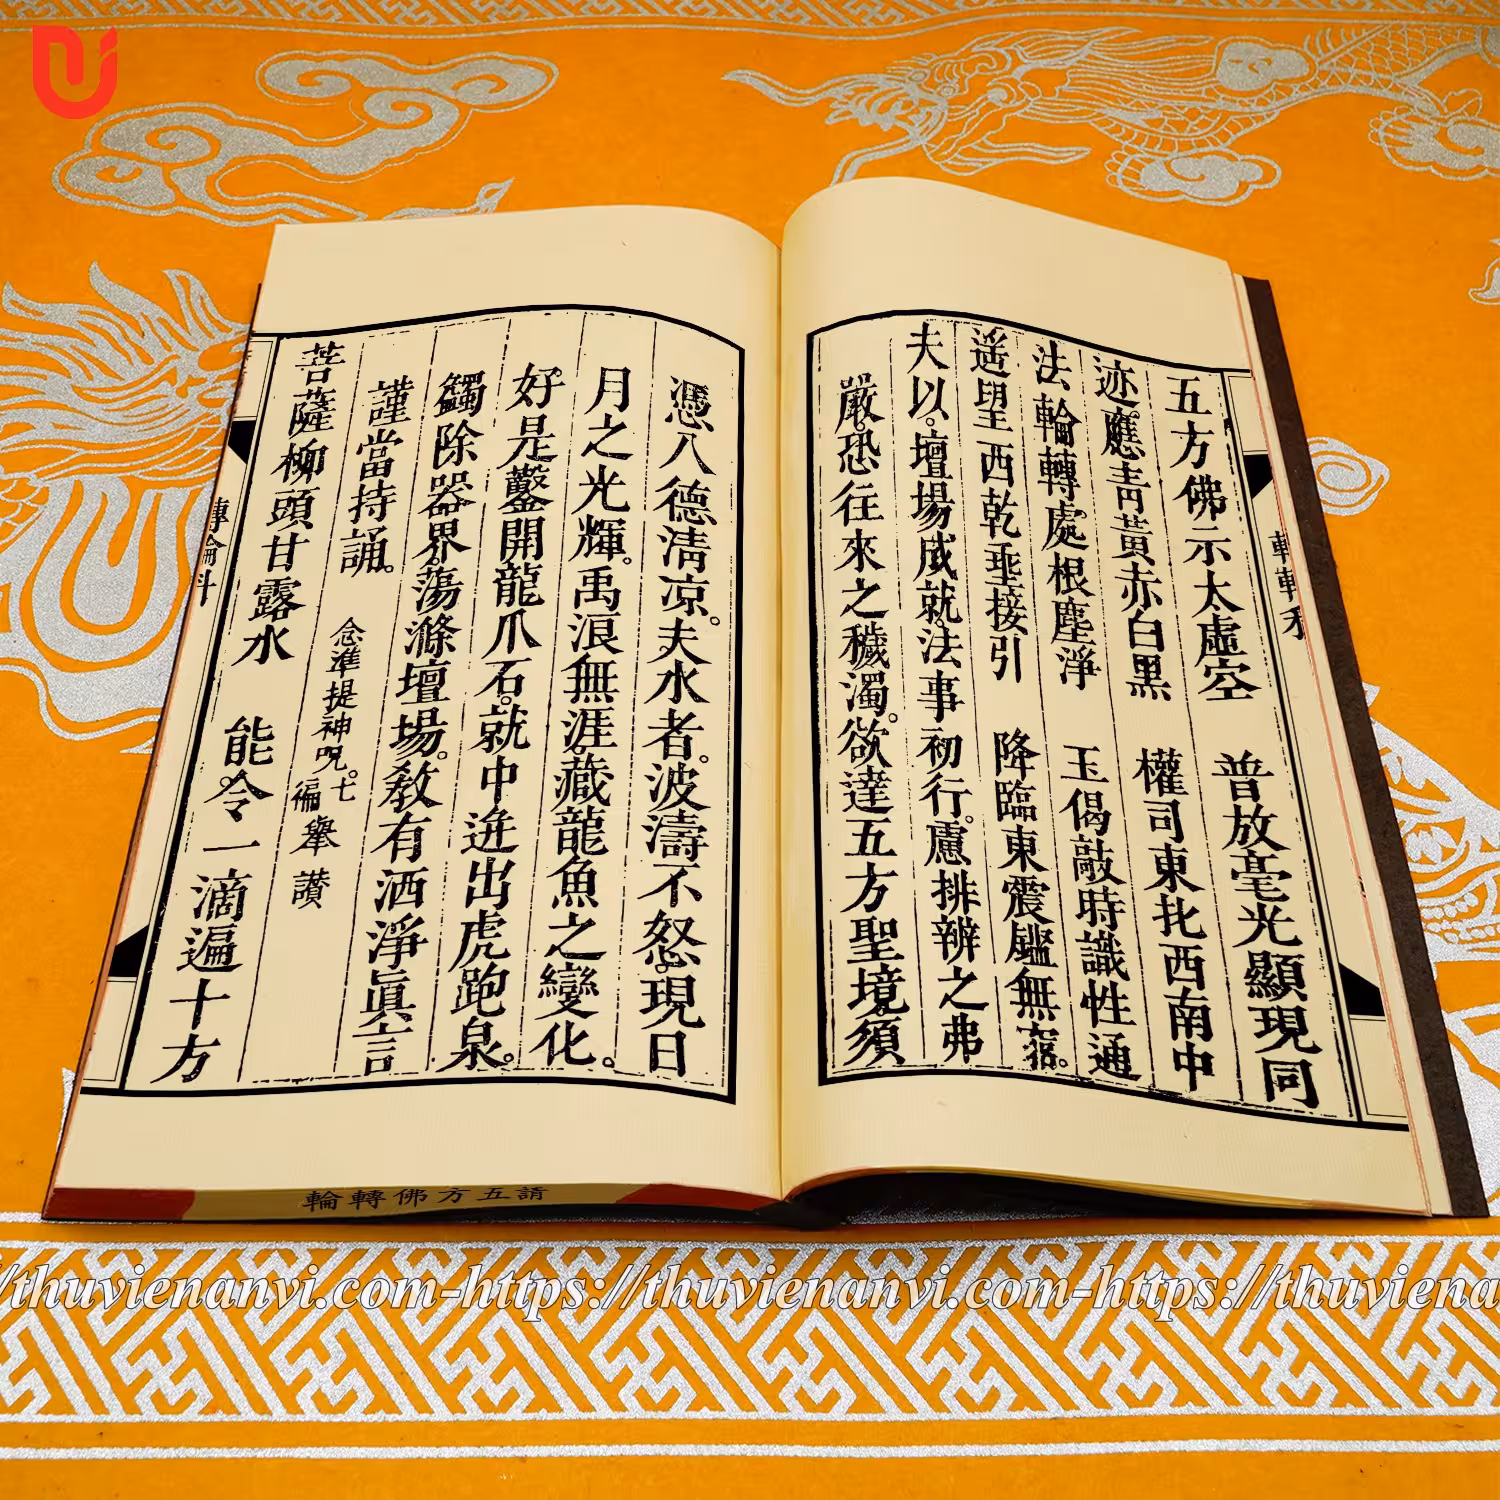 五方佛示太虛空 普放毫光顯現同
迹應青黃赤白黑 權司東北西南中
法輪轉處根塵淨 玉偈敲時識性通
遥望西乾垂接引 降臨東震鑑無窮。
夫以。壇場成就。法事初行。慮排辨之弗
嚴。恐往來之穢濁。欲達五方聖境。須
憑八德淸凉。夫水者。波濤不怒。現日
月之光輝。禹浪無涯。藏龍魚之變化。
好是鑿開龍爪石。就中迸出虎跑泉。
蠲除器界。蕩滌壇場。教有洒淨眞言
謹當持誦。 念準提神呪。七徧舉讃
菩薩柳頭甘露水 能令一滴遍十方
請五方佛轉輪
//thuvienanvi.com-https://thuvienanvi.com-https://thuviena